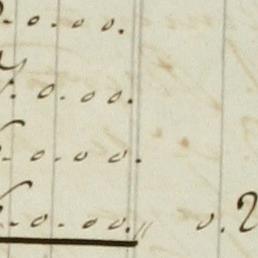 . 0. 0 0.
7. 0. 0 0.
. 0. 0 0.
. 0. 0 0. " 0. 2